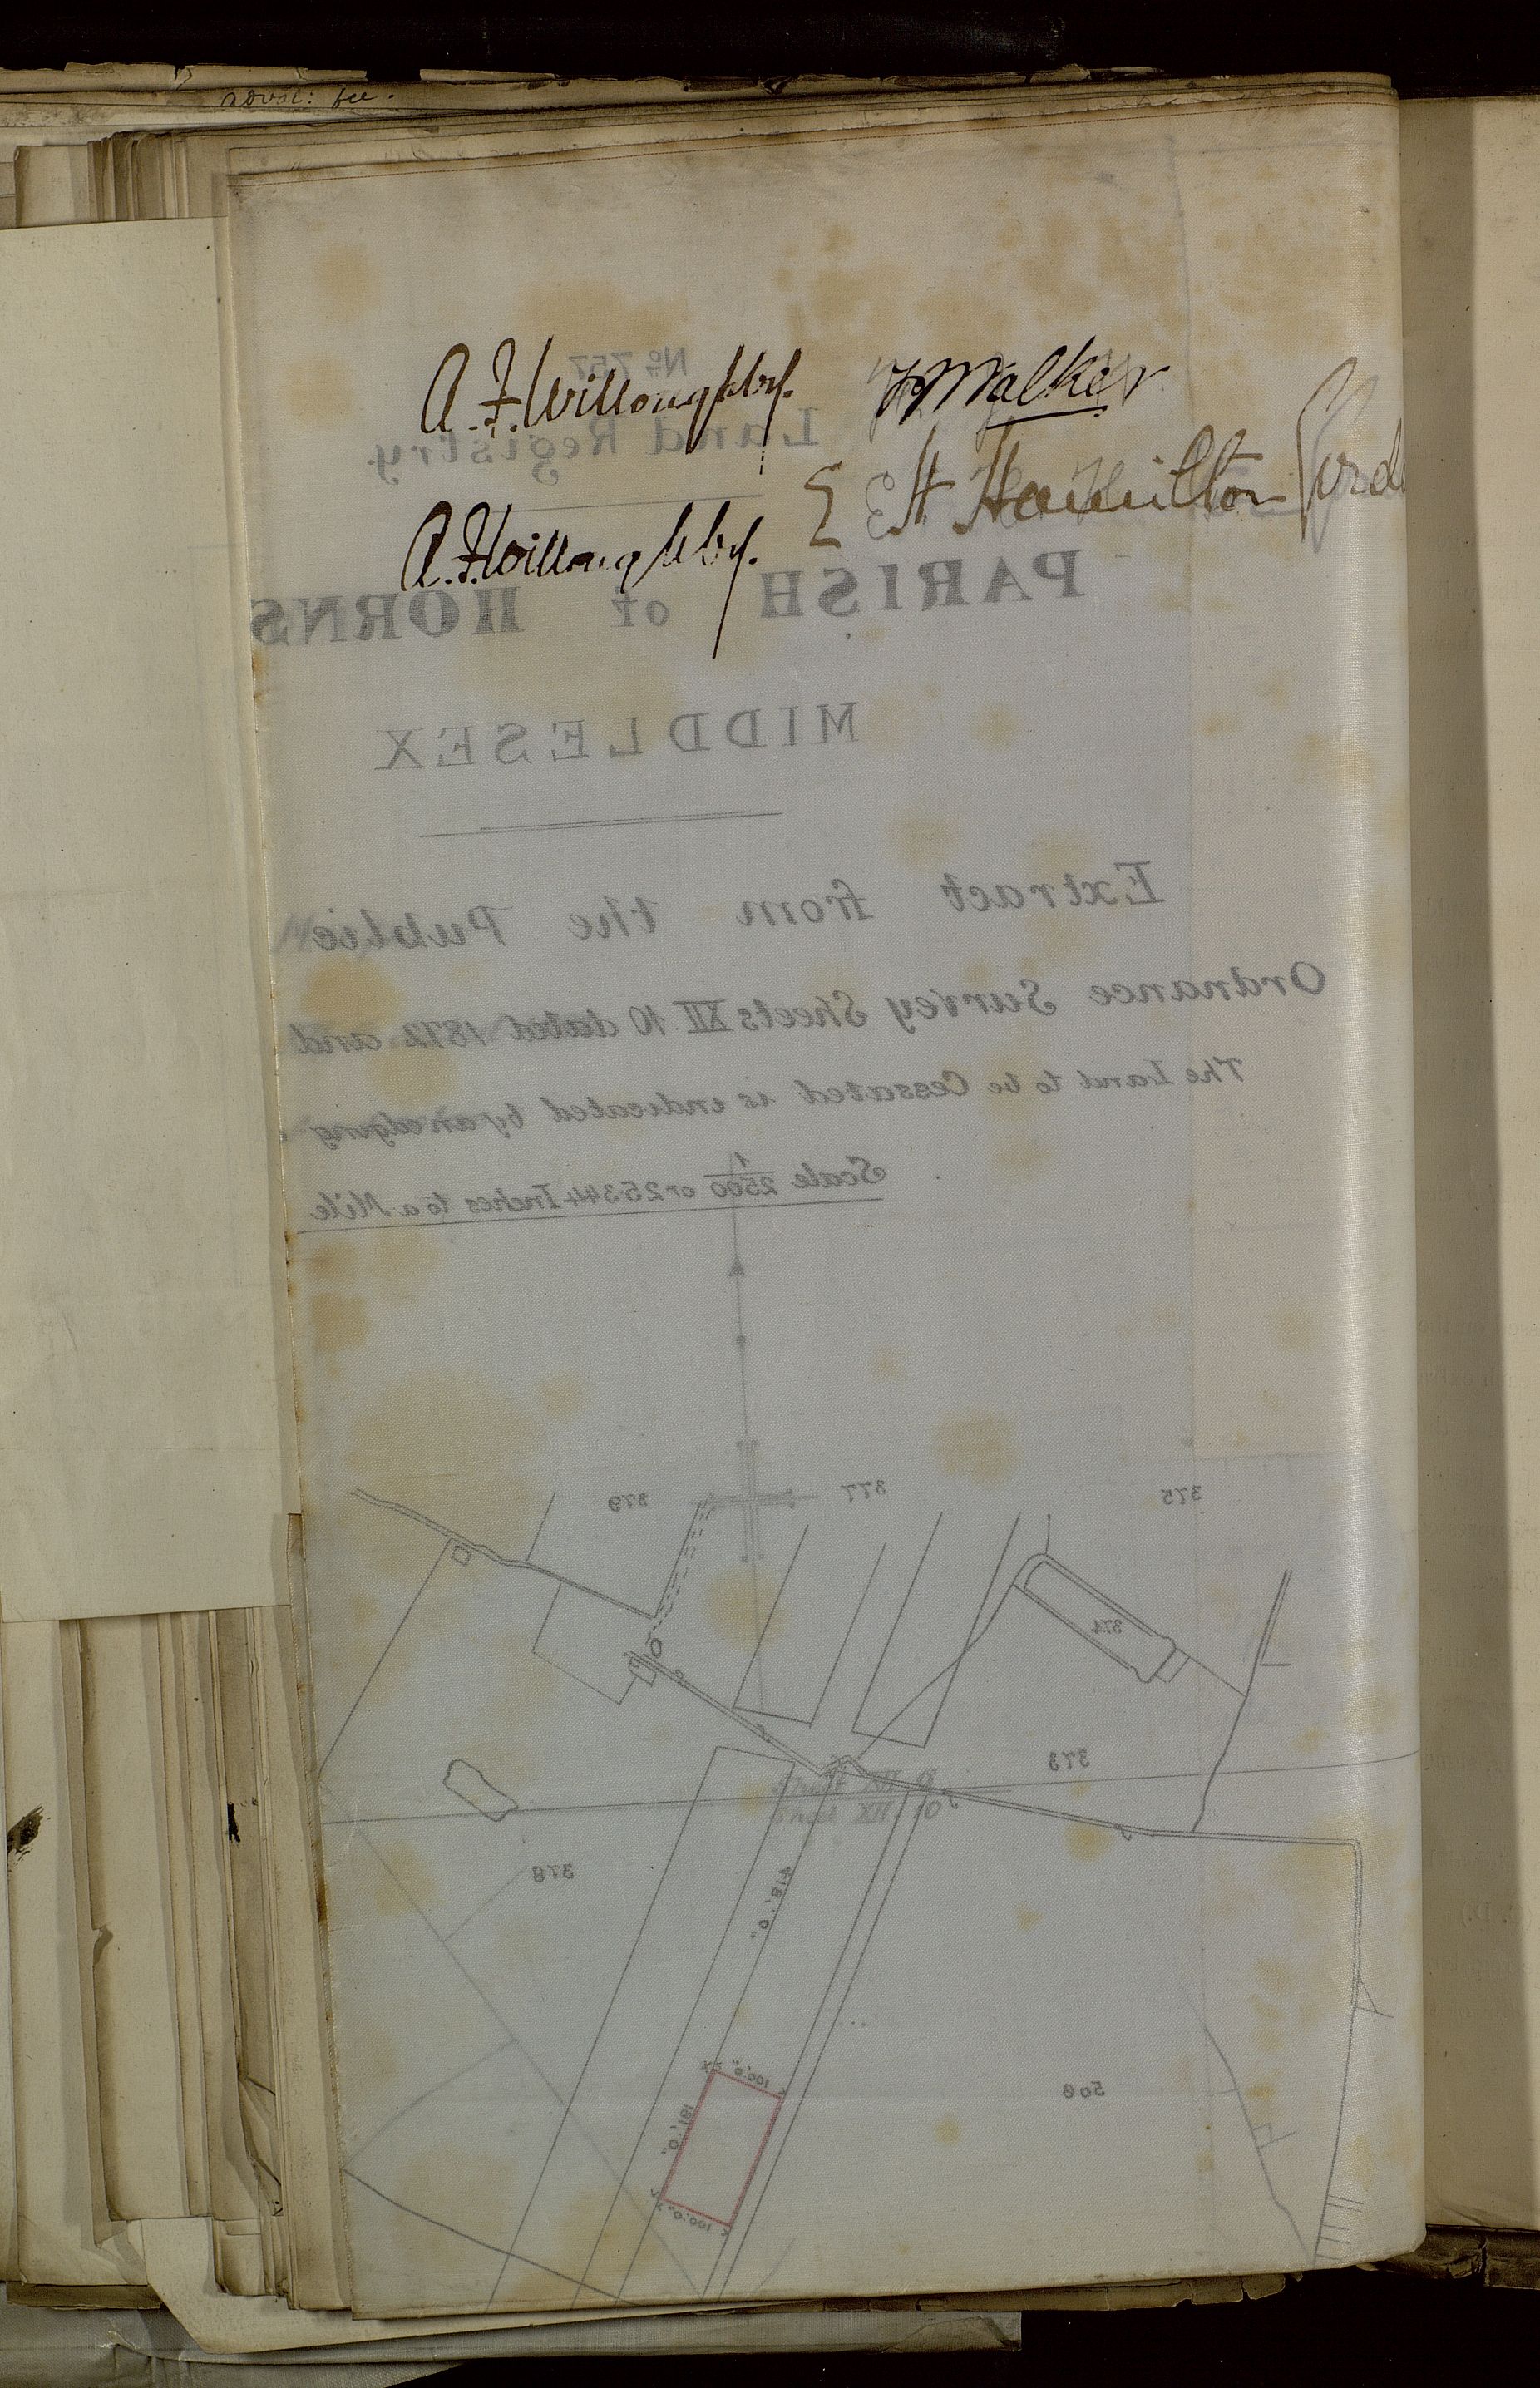 adval: fee.
Nº 757
A. F. Willoughby. Walker
Land Registry.
E St Hamilton
A. F. Willoughby.
PARISH of HORNS
MIDDLESEX
Extract from the Public
Ordnance Survey Sheets XII. 10 dated 1872 and
The Land to be Cessated is indicated by an edging
Scale 1/2500 or 25·344 Inches to a Mile
379 377 375
374
373
Sheet XII. 6
Sheet XII. 10
378
418'. 0"
100'. 0"
506
181'. 0"
100'. 0"